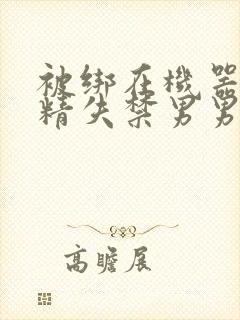 被绑在機器
精失禁男男
高瞻展